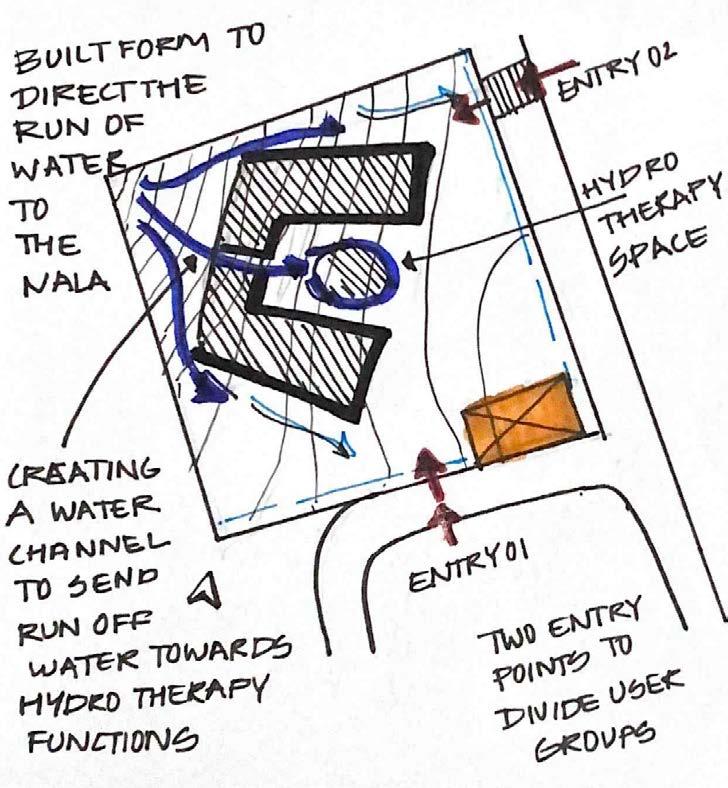 BUILT FORM TO
DIRECT THE
RUN OF
WATER
TO
THE
NALA
ENTRY 02
HYDRO
THERAPY
SPACE
CREATING
A WATER
CHANNEL
TO SEND
RUN OFF
WATER TOWARDS
HYDRO THERAPY
FUNCTIONS
ENTRY 01
TWO ENTRY
POINTS TO
DIVIDE USER
GROUPS